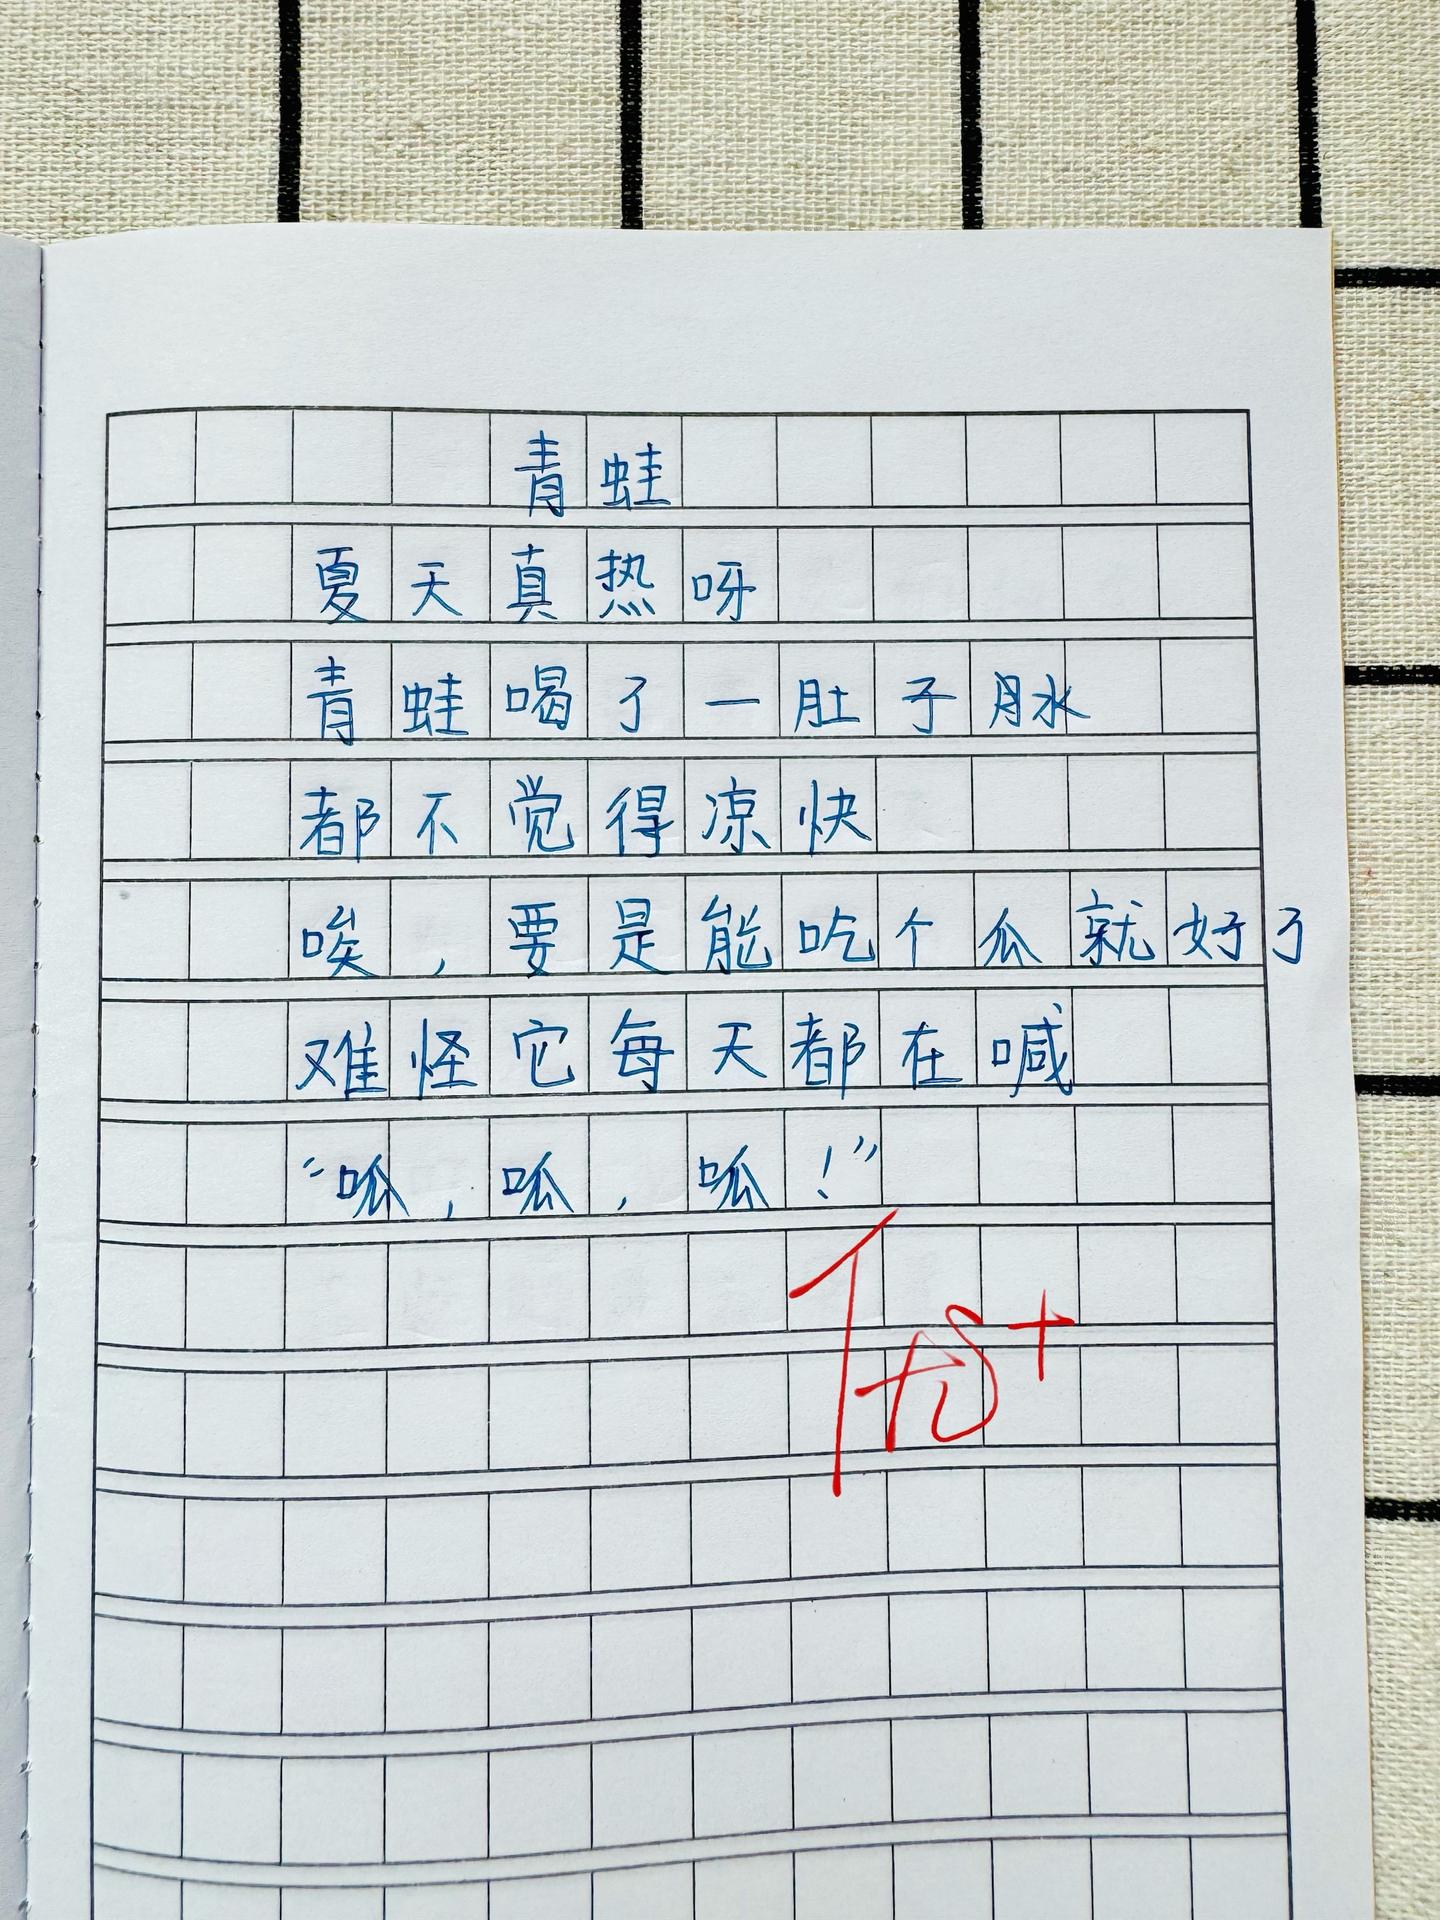 青蛙
夏天真热呀
青蛙喝了一肚子
都不觉得凉快
唉，要是能吃个瓜就好了
难怪它每天都在喊
“呱，呱，呱！”